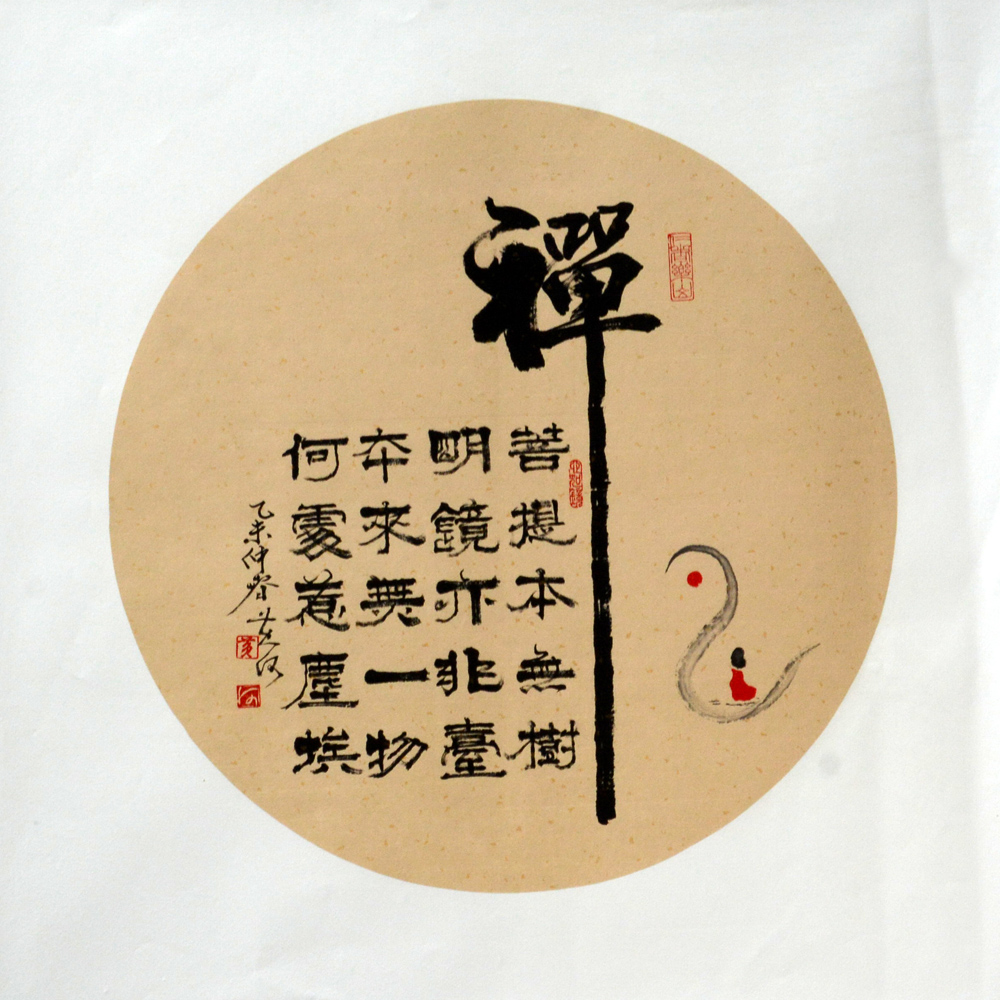 禪
仁者樂山
菩提本無樹
明鏡亦非臺
夲來無一物
何處惹塵埃
乙未仲春